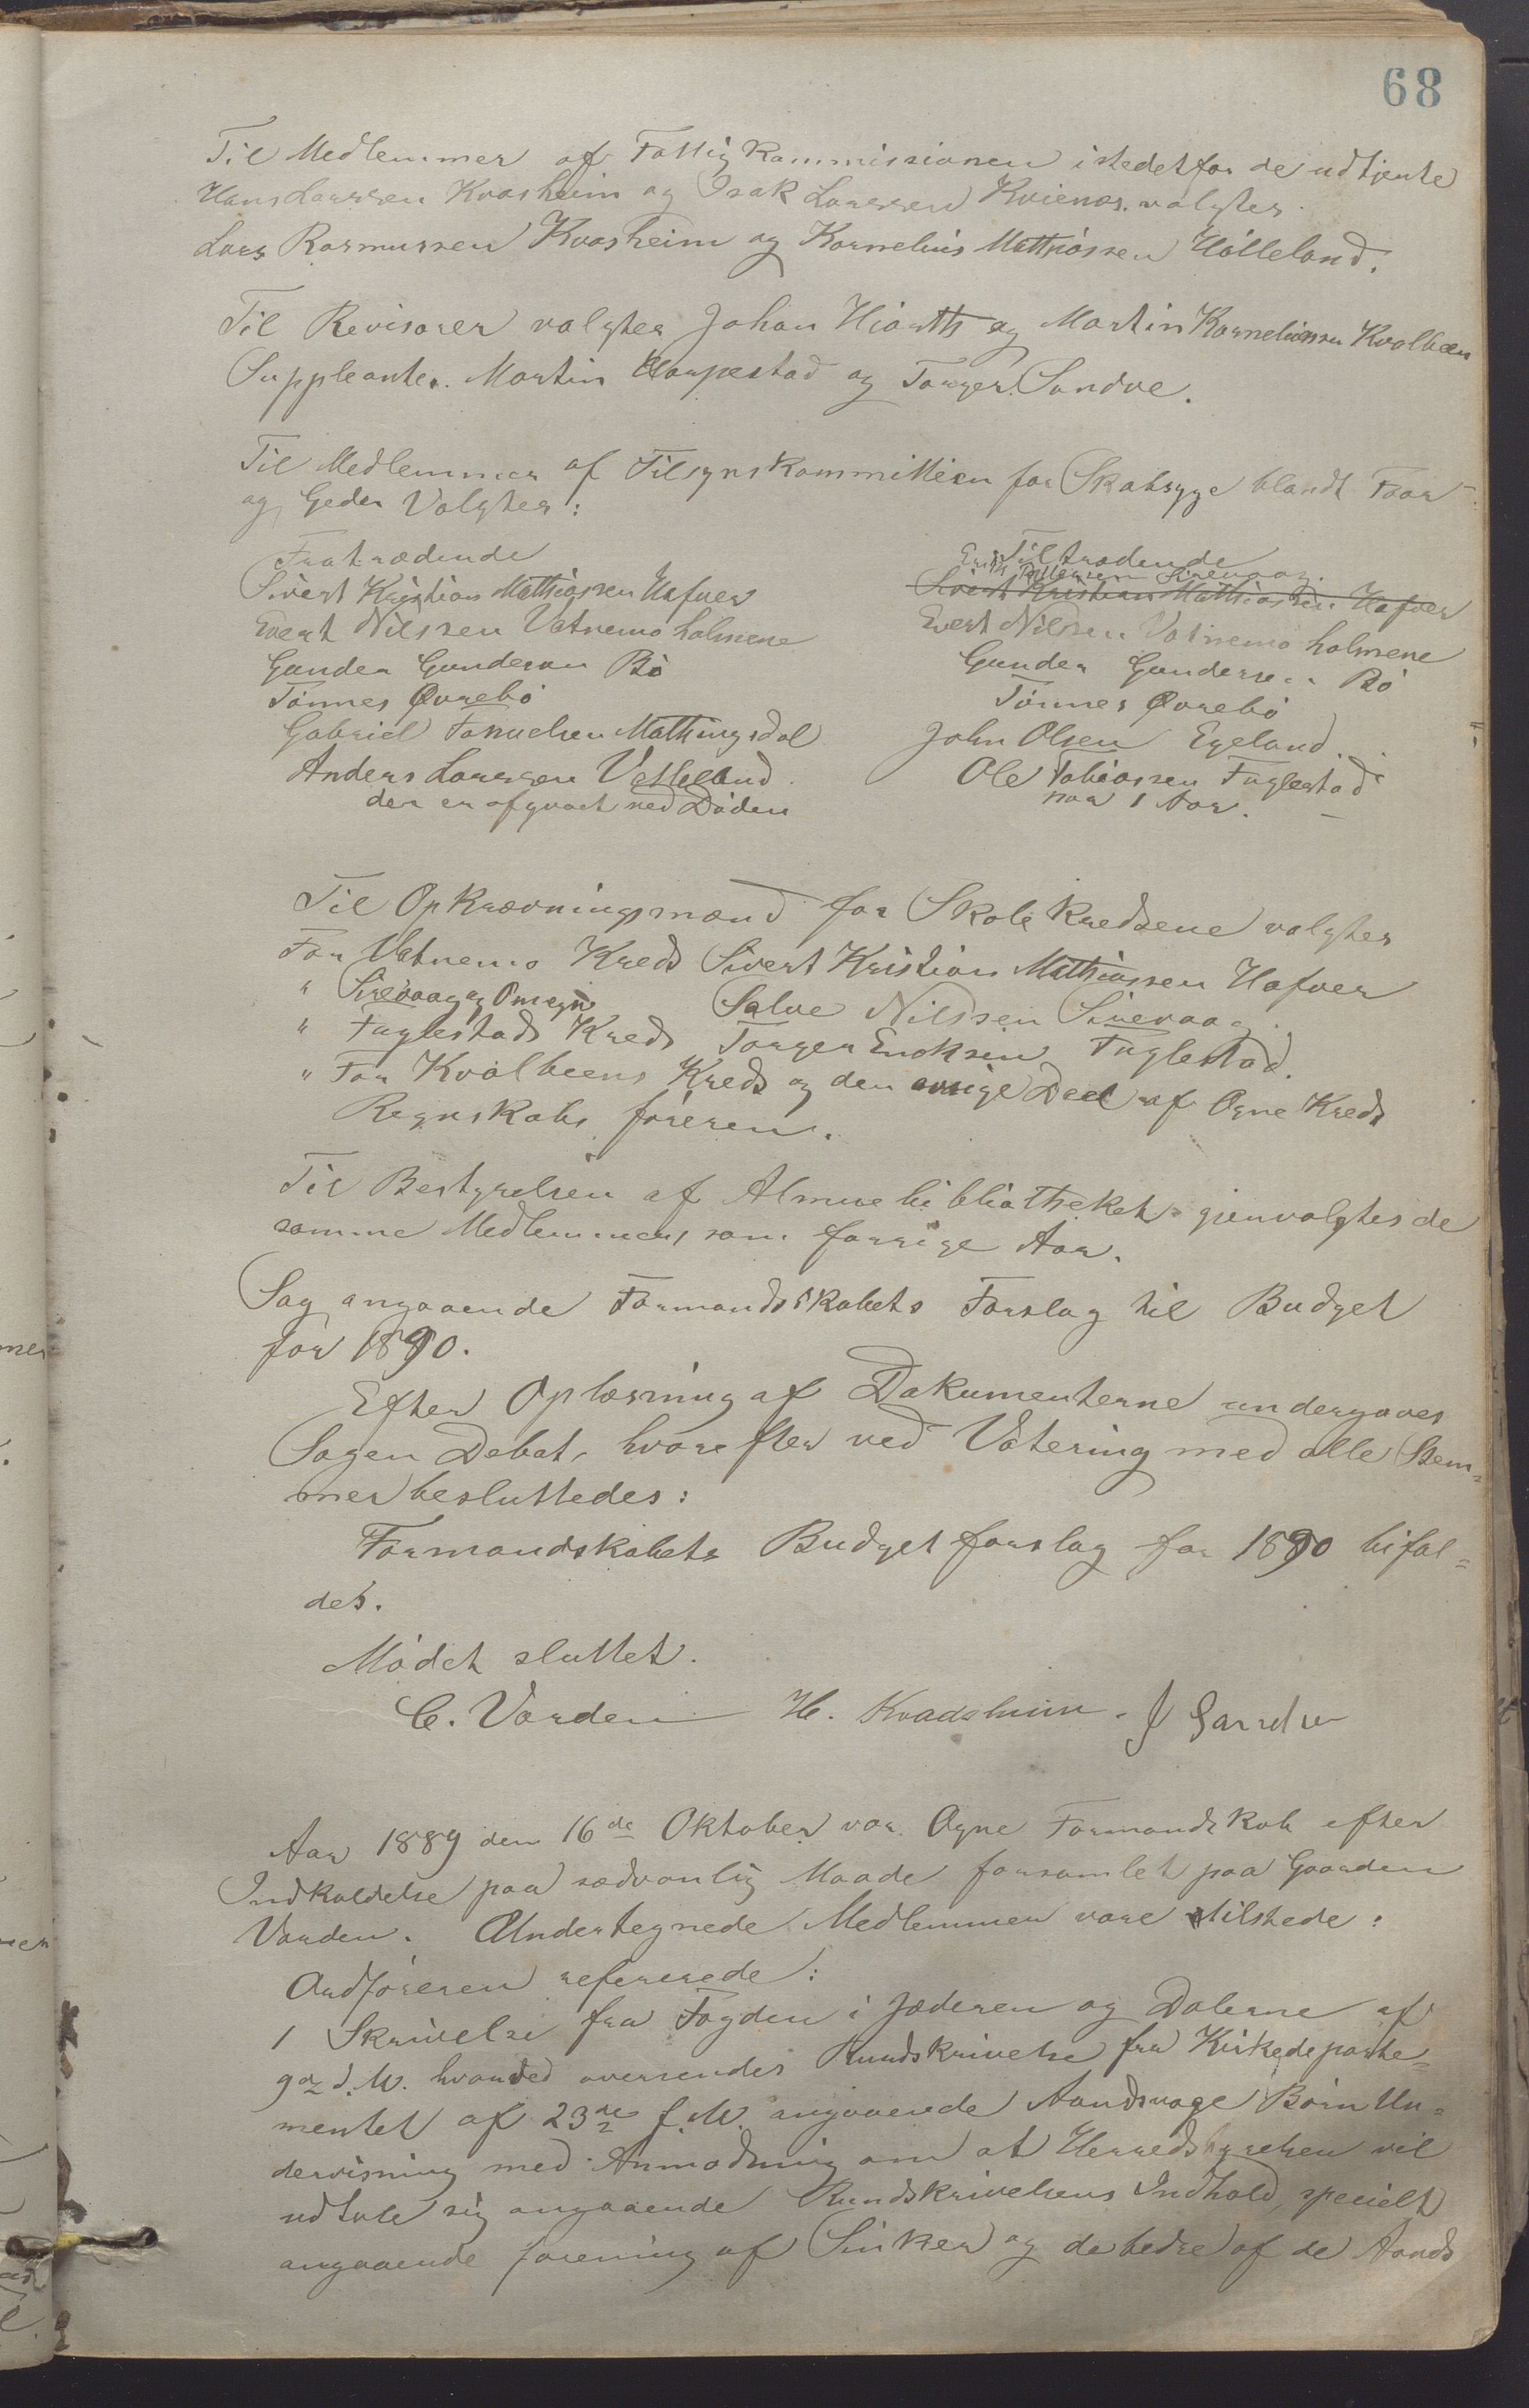 68
Til Medlemmer af Fattigkommissionen istedetfor de udtjente
Hans Larssen Kvasheim og Isak Larssen Kvienes. valgtes.
Lars Rasmussen Kvasheim og Kornelius Matthiassen Hölleland.
Til Revisorer valgtes Johan Hiorth og Martin Korneliussen Kvalbeen
Suppleanter. Martin Harpestad og Torger Sandve.
Til Medlemmer af Tilsynskommitteen for Skabsyge blandt Faar
og Geder Valgtes:
Fratrædende
Sivert Kristian Mathiassen Hafver
Evert Nilssen Vatnemo holmene
Gunder Gunderson Bö
Tönnes Øvrebö
Gabriel Tønnesen Mathingsdal
Anders Larssen Vetteland.
der er afgaaet ved Döden
Tiltrædende
Sirevaag.
Sivert Kristian Mathiassen Hafver
Evert Nilssen Vatnemo holmene
Gunder Gundersen Bö
Tönnes Øvrebö
John Olsen Egeland.
Ole Tobiassen Fuglestad
paa 1 Aar.
Til Opkrævningsmænd for Skolekredsene valgtes
For Vatnemo Kreds Sivert Kristian Mathiassen Hafver
" Sirevaag og Omegn Salve Nilssen Sirevaag.
" Fuglestads Kreds Torger Enoksen Fuglestad.
" For Kvalbeens Kreds og den övrige Deel af Ogne Kreds
Regnskabsföreren.
Til Bestyrelsen af Almuebibliotheket gjenvalgtes de
samme Medlemmer, som forrige Aar.
Sag angaaende Formandsskabets Forslag til Budget
for 1890.
Efter Oplæsning af Dokumenterne undergaves
Sagen Debat, hvorefter ved Votering med alle Stem=
mer besluttedes:
Formandskabets Budgetforslag for 1890 bifal=
des.
Mödet sluttet.
C. Varden H. Kvadsheim. J Sandve
Aar 1889 den 16de Oktober var Ogne Formandskab efter
Indkaldelse paa sædvanlig Maade forsamlet paa Gaarden
Varden. Undertegnede Medlemmer vare tilstede:
Ordföreren refererede:
1 Skrivelse fra Fogden i Jæderen og Dalerne af
9de d.M. hvorved oversendes Rundskrivelse fra Kirkedeparte=
mentet af 23de f.M. angaaende Aandsvage Börn Un=
dervisning med Anmodning om at Herredstyrelsen vil
udtale sig angaaende Rundskrivelsens Indhold, specielt
angaaende forening af Sinker og de bedre af de Aands